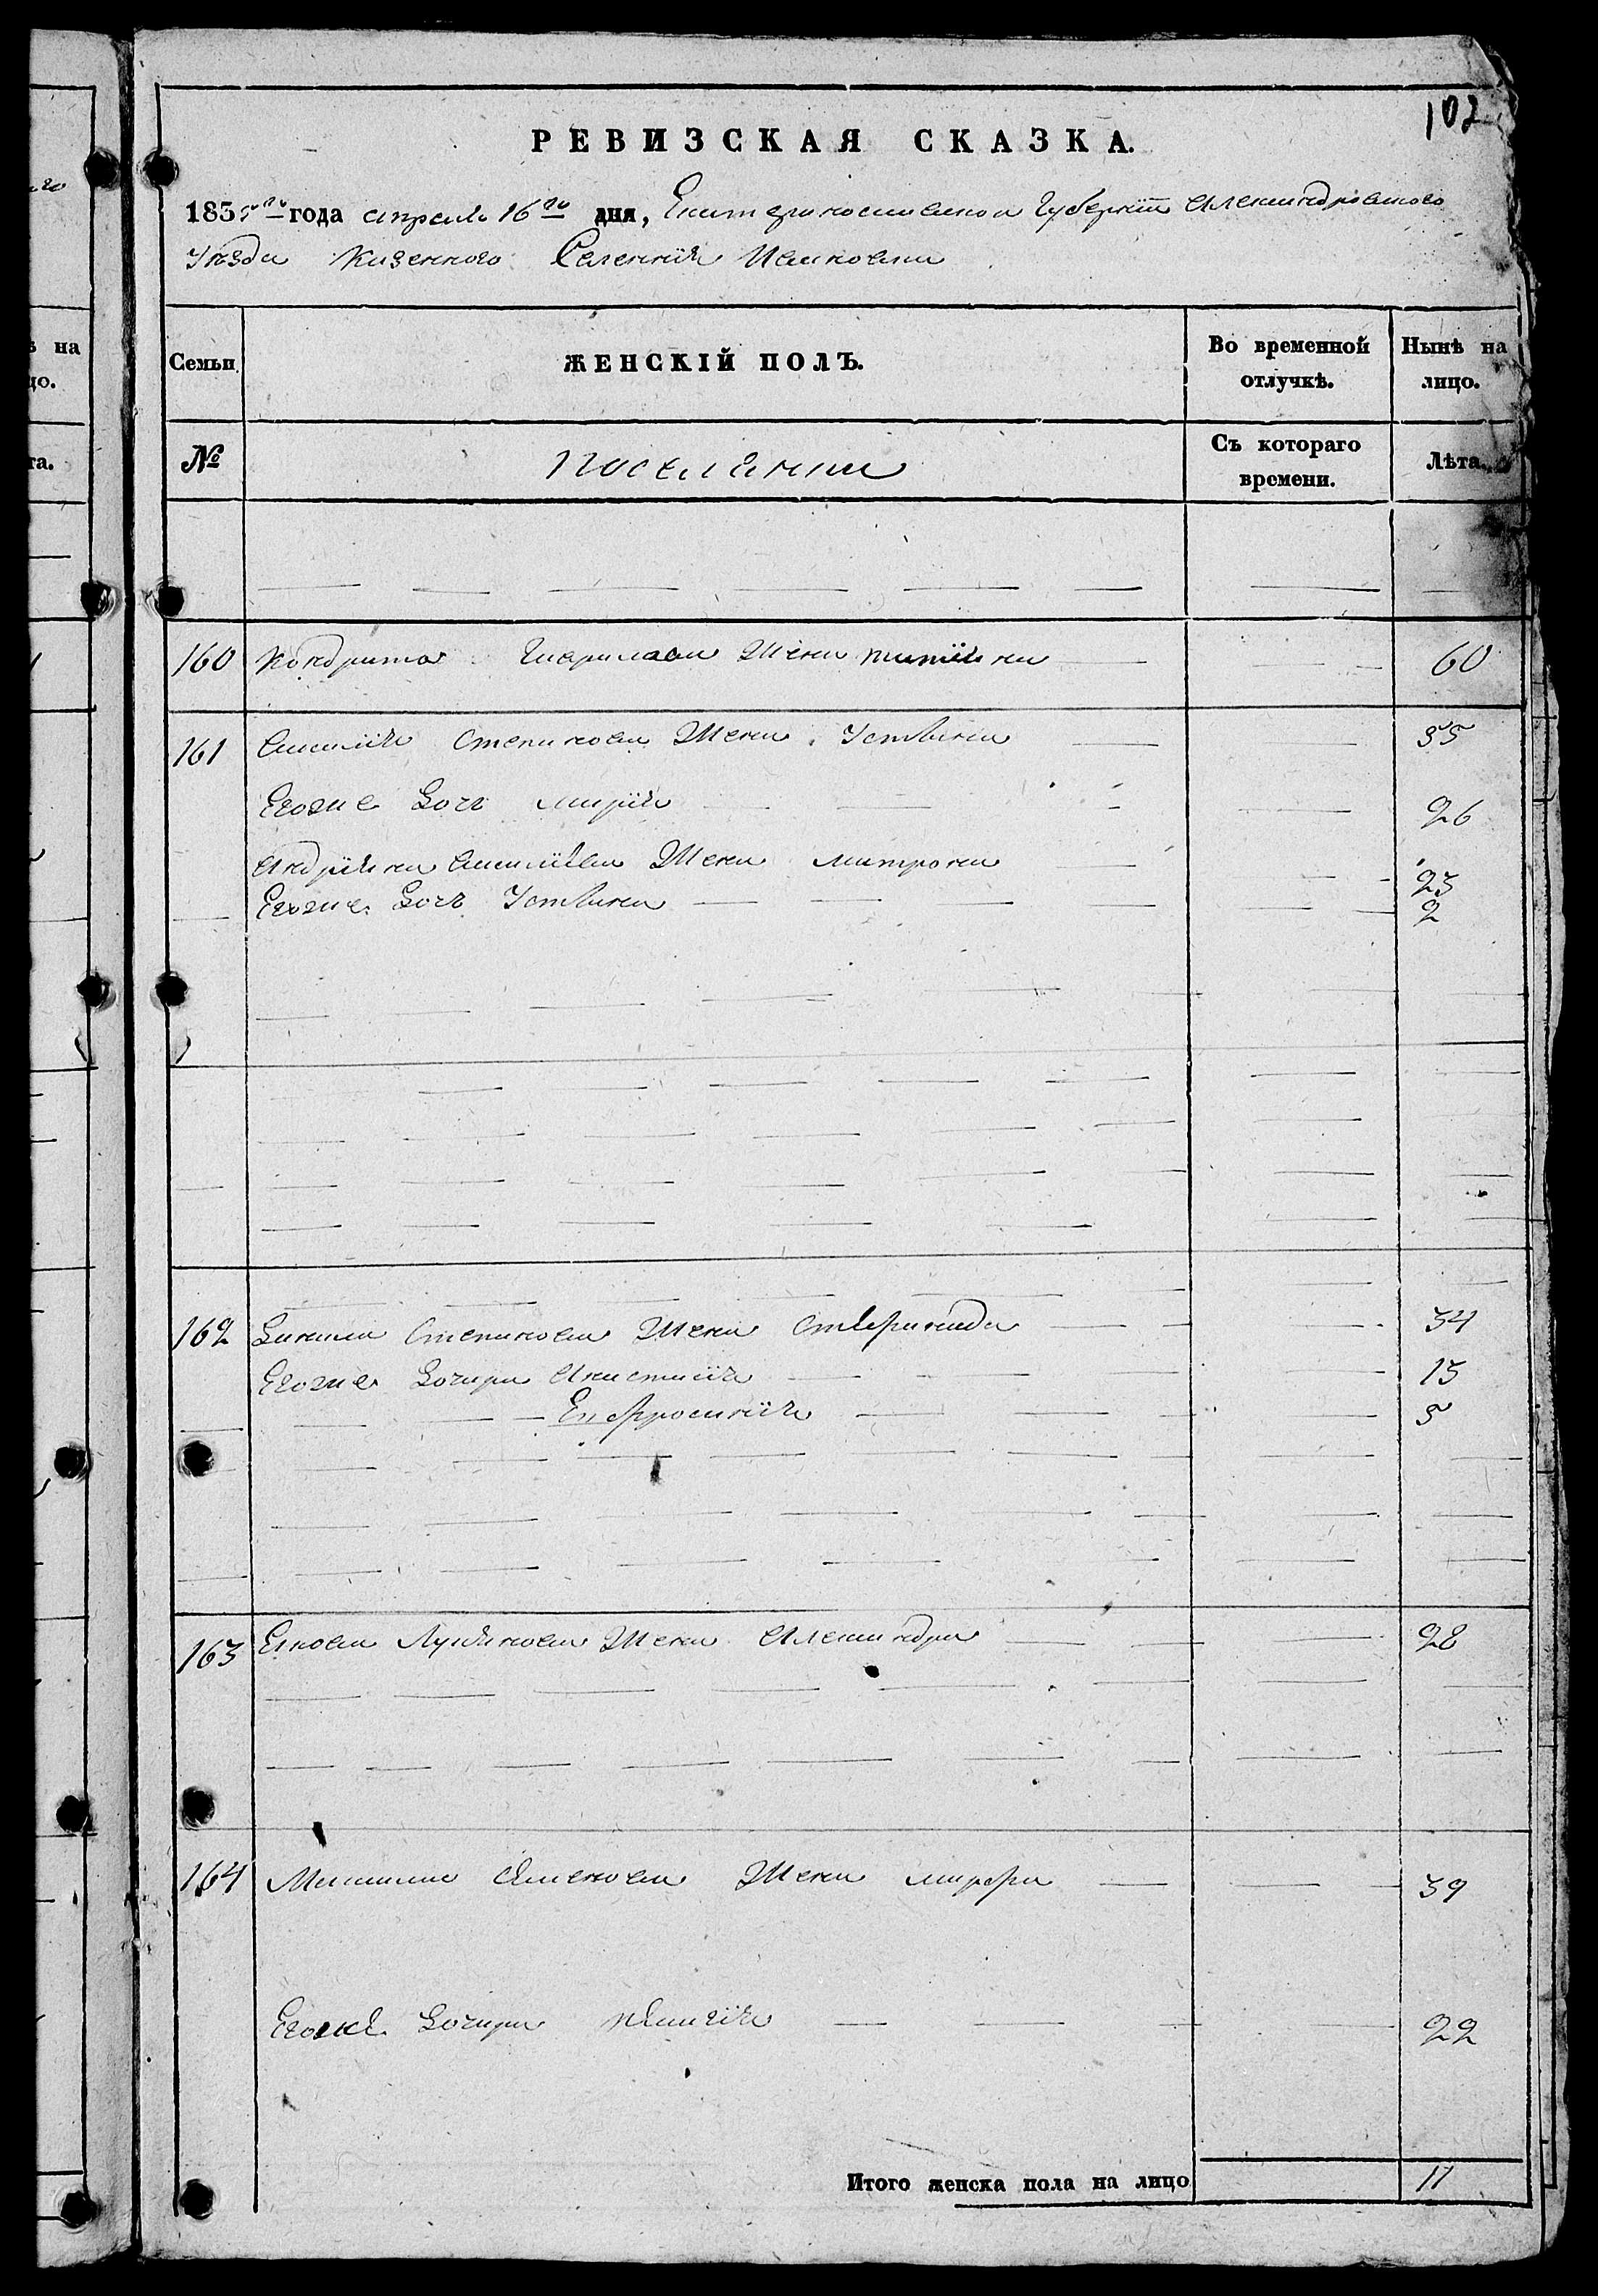 102
РЕВИЗСКАЯ СКАЗКА.
1835 го года апреля 16 го дня, Екатеринославской Губернїи Александровского
Уезда Казенного Селенїя Ивановки
Семьи
ЖЕНСКІЙ ПОЛЪ.
Во временной отлучкѣ.
Нынѣ на лицо.
№
Поселянки
Съ котораго времени.
Лѣта.
160 Кондрата Гаврилова Жена Татїяна 60
161 Василїя Степанова Жена Устинья 55
Егоже Дочь Марїя 26
Андрїяна Василїева Жена Матрона 23
Егоже Дочь Устинья 2
162 Данила Степанова Жена Степанида 34
Егоже Дочери Анастасїя 13
Ефросинїя 5
163 Лукьянова Жена Александра 28
164 Максима Жена Марфа 39
Егоже Дочери 22
Итого женска пола на лицо 11
на
цо.
та.